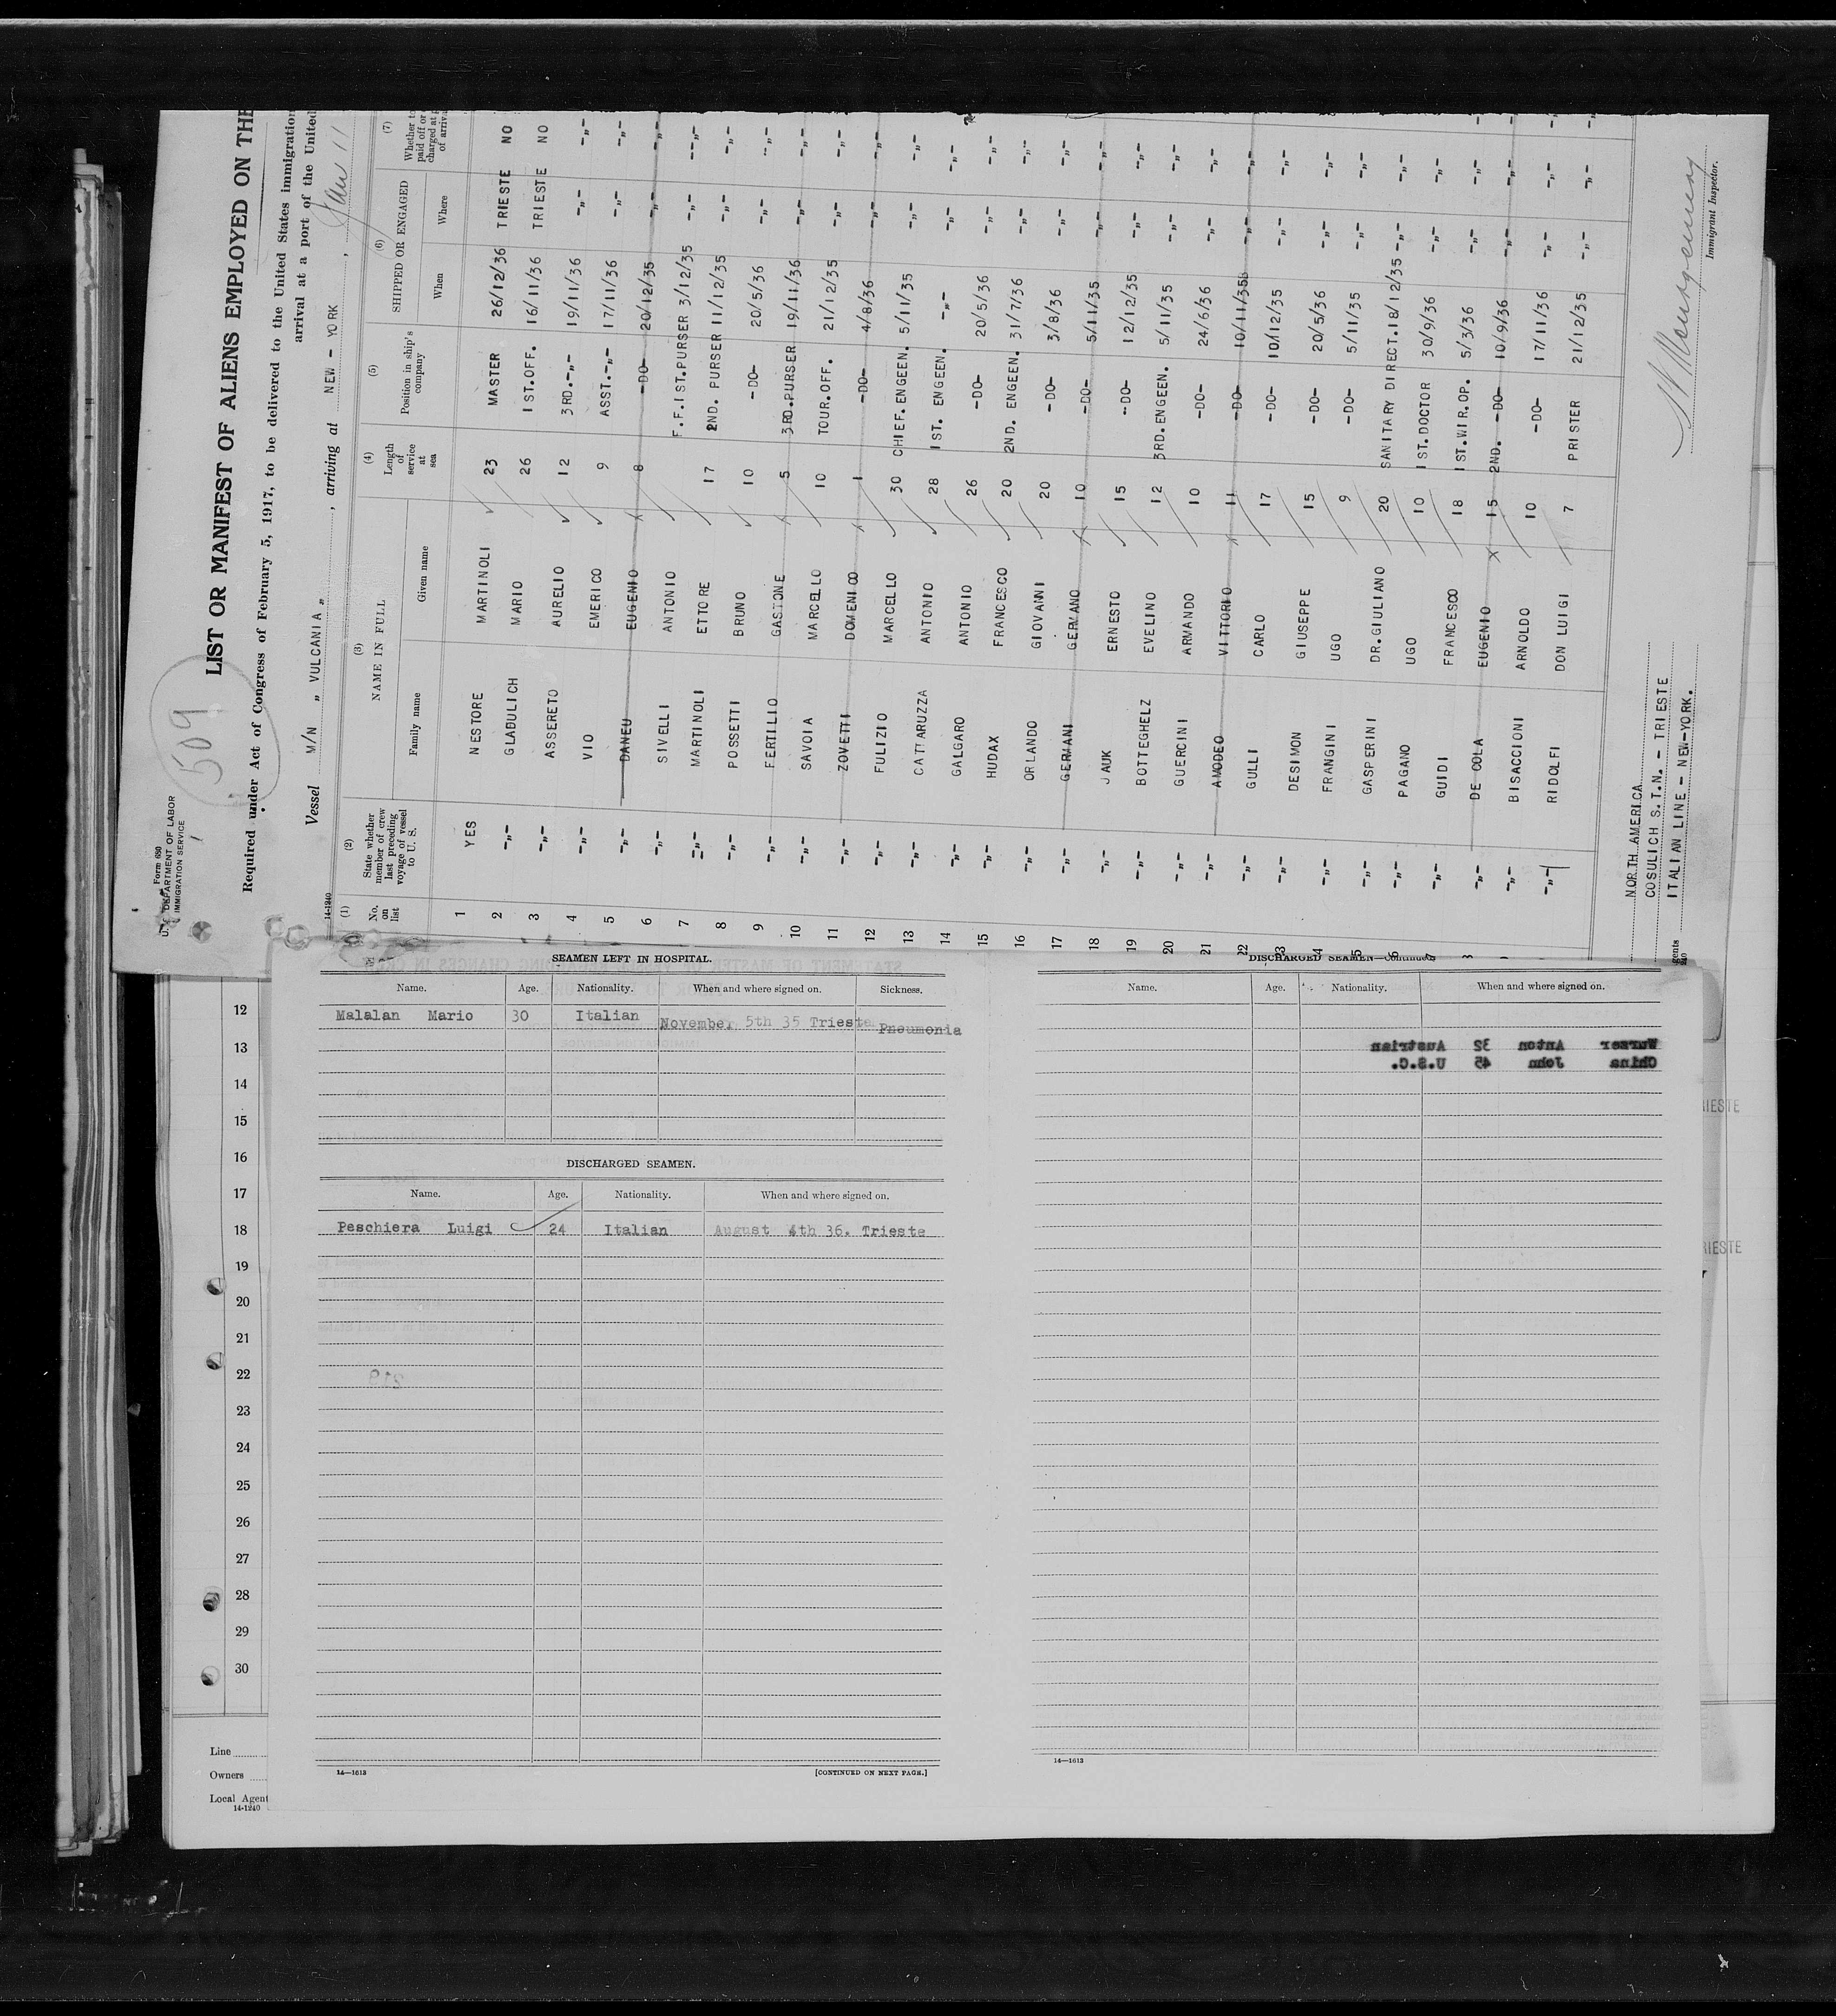 Form 680
U. S. DEPARTMENT OF LABOR
IMMIGRATION SERVICE
509
LIST OR MANIFEST OF ALIENS EMPLOYED ON THE
Required under Act of Congress of February 5, 1917, to be delivered to the United States immigration
arrival at a port of the United
Vessel M/N „ VULCANIA „ , arriving at NEW - YORK , Jan 11
14-1240
(1) No. on list (2) State whether member of crew last preceding voyage of vessel to U. S. (3) NAME IN FULL Family name Given name (4) Length of service at sea (5) Position in ship's company (6) SHIPPED OR ENGAGED When Where (7) Whether to paid off or charged at of arriva
1 YES NESTORE MARTINOLI 23 MASTER 26/12/36 TRIESTE NO
2 -„- GLADULICH MARIO 26 1ST.OFF. 16/11/36 TRIESTE NO
3 -„- ASSERETO AURELIO 12 3RD.-„- 19/11/36 -„- -„-
4 -„- VIO EMERICO 9 ASST.-„- 17/11/36 -„- -„-
5 -„- DANEU EUGENIO 8 -DO- 20/12/35 -„- -„-
6 -„- SIVELLI ANTONIO F.F.1ST.PURSER 3/12/35 -„- -„-
7 -„- MARTINOLI ETTORE 17 2ND. PURSER 11/12/35 -„- -„-
8 -„- POSSETTI BRUNO 10 -DO- 20/5/36 -„- -„-
9 -„- FERTILIO GASTONE 5 3RD.PURSER 19/11/36 -„- -„-
10 -„- SAVOIA MARCELLO 10 TOUR.OFF. 21/12/35 -„- -„-
11 -„- ZOVETTI DOMENICO 1 -DO- 4/8/36 -„- -„-
12 -„- FULIZIO MARCELLO 30 CHIEF.ENGEEN. 5/11/35 -„- -„-
13 -„- CATTARUZZA ANTONIO 28 1ST. ENGEEN. -„- -„- -„-
14 -„- GALGARO ANTONIO 26 -DO- 20/5/36 -„- -„-
15 -„- HUDAX FRANCESCO 20 2ND. ENGEEN. 31/7/36 -„- -„-
16 -„- ORLANDO GIOVANNI 20 -DO- 3/8/36 -„- -„-
17 -„- GERMANI GERMANO 10 -DO- 5/11/35 -„- -„-
18 -„- JAUK ERNESTO 15 -DO- 12/12/35 -„- -„-
19 -„- BOTTEGHELZ EVELINO 12 3RD.ENGEEN. 5/11/35 -„- -„-
20 -„- GUERCINI ARMANDO 10 -DO- 24/6/36 -„- -„-
21 -„- AMODEO VITTORIO 11 -DO- 10/11/35 -„- -„-
22 -„- GULLI CARLO 17 -DO- 10/12/35 -„- -„-
23 -„- DESIMON GIUSEPPE 15 -DO- 20/5/36 -„- -„-
-„- FRANGINI UGO 9 -DO- 5/11/35 -„- -„-
-„- GASPERINI DR.GIULIANO 20 SANITARY DIRECT.18/12/35 -„- -„-
-„- PAGANO UGO 10 1ST.DOCTOR 30/9/36 -„- -„-
-„- GUIDI FRANCESCO 18 1ST.WIR.OP. 5/3/36 -„- -„-
-„- DE COLA EUGENIO 15 2ND. -DO- 10/9/36 -„- -„-
-„- BISACCIONI ARNOLDO 10 -DO- 17/11/36 -„- -„-
-„- RIDOLFI DON LUIGI 7 PRISTER 21/12/35 -„- -„-
NORTH AMERICA
COSULICH S.T.N. - TRIESTE
ITALIAN LINE - NEW-YORK.
Immigrant Inspector.
SEAMEN LEFT IN HOSPITAL.
Name. Age. Nationality. When and where signed on. Sickness.
Malalan Mario 30 Italian November 5th 35 Trieste Pneumonia
DISCHARGED SEAMEN.
Name. Age. Nationality. When and where signed on.
Peschiera Luigi 24 Italian August 4th 36. Trieste
14—1613 [CONTINUED ON NEXT PAGE.]
DISCHARGED SEAMEN—Continued
Name. Age. Nationality. When and where signed on.
Wurzer Anton 32 Austrian
China John 45 U.S.C.
14—1613
12
13
14
15
16
17
18
19
20
21
22
23
24
25
26
27
28
29
30
Line
Owners
Local Agent
14-1240
RIESTE
RIESTE